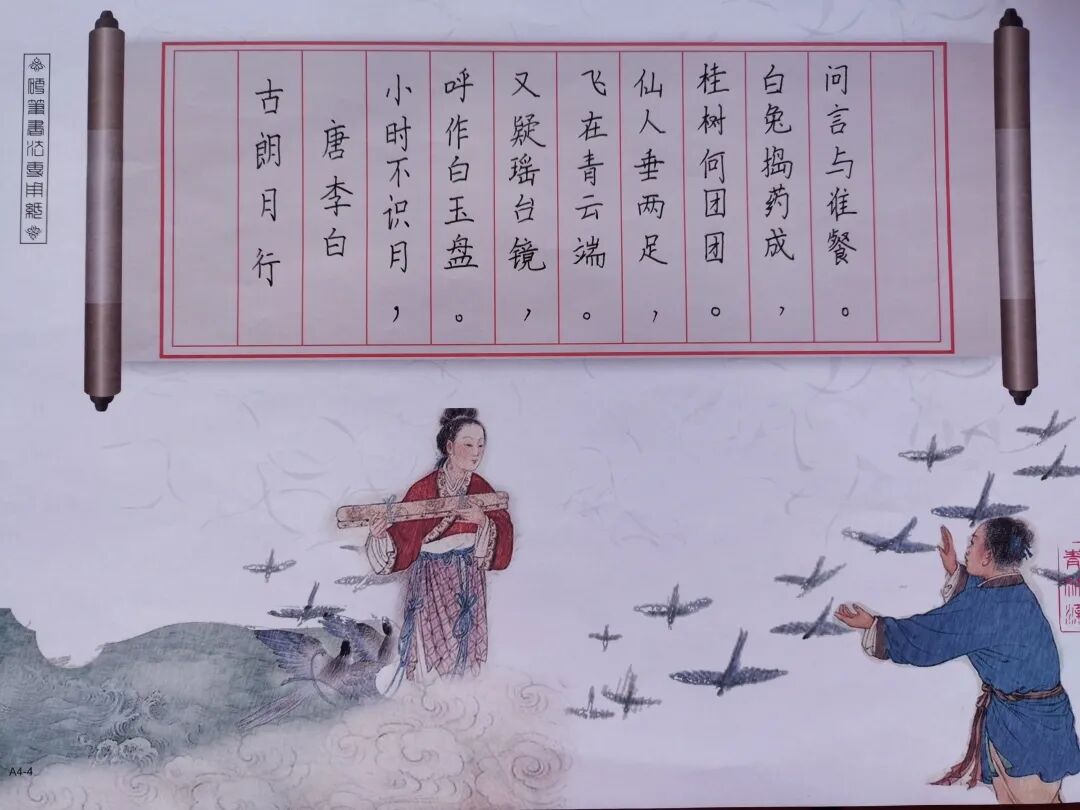 硬筆書法專用紙
古朗月行
唐李白
小时不识月，
呼作白玉盘。
又疑瑶台镜，
飞在青云端。
仙人垂两足，
桂树何团团。
白兔捣药成，
问言与谁餐。
A4-4